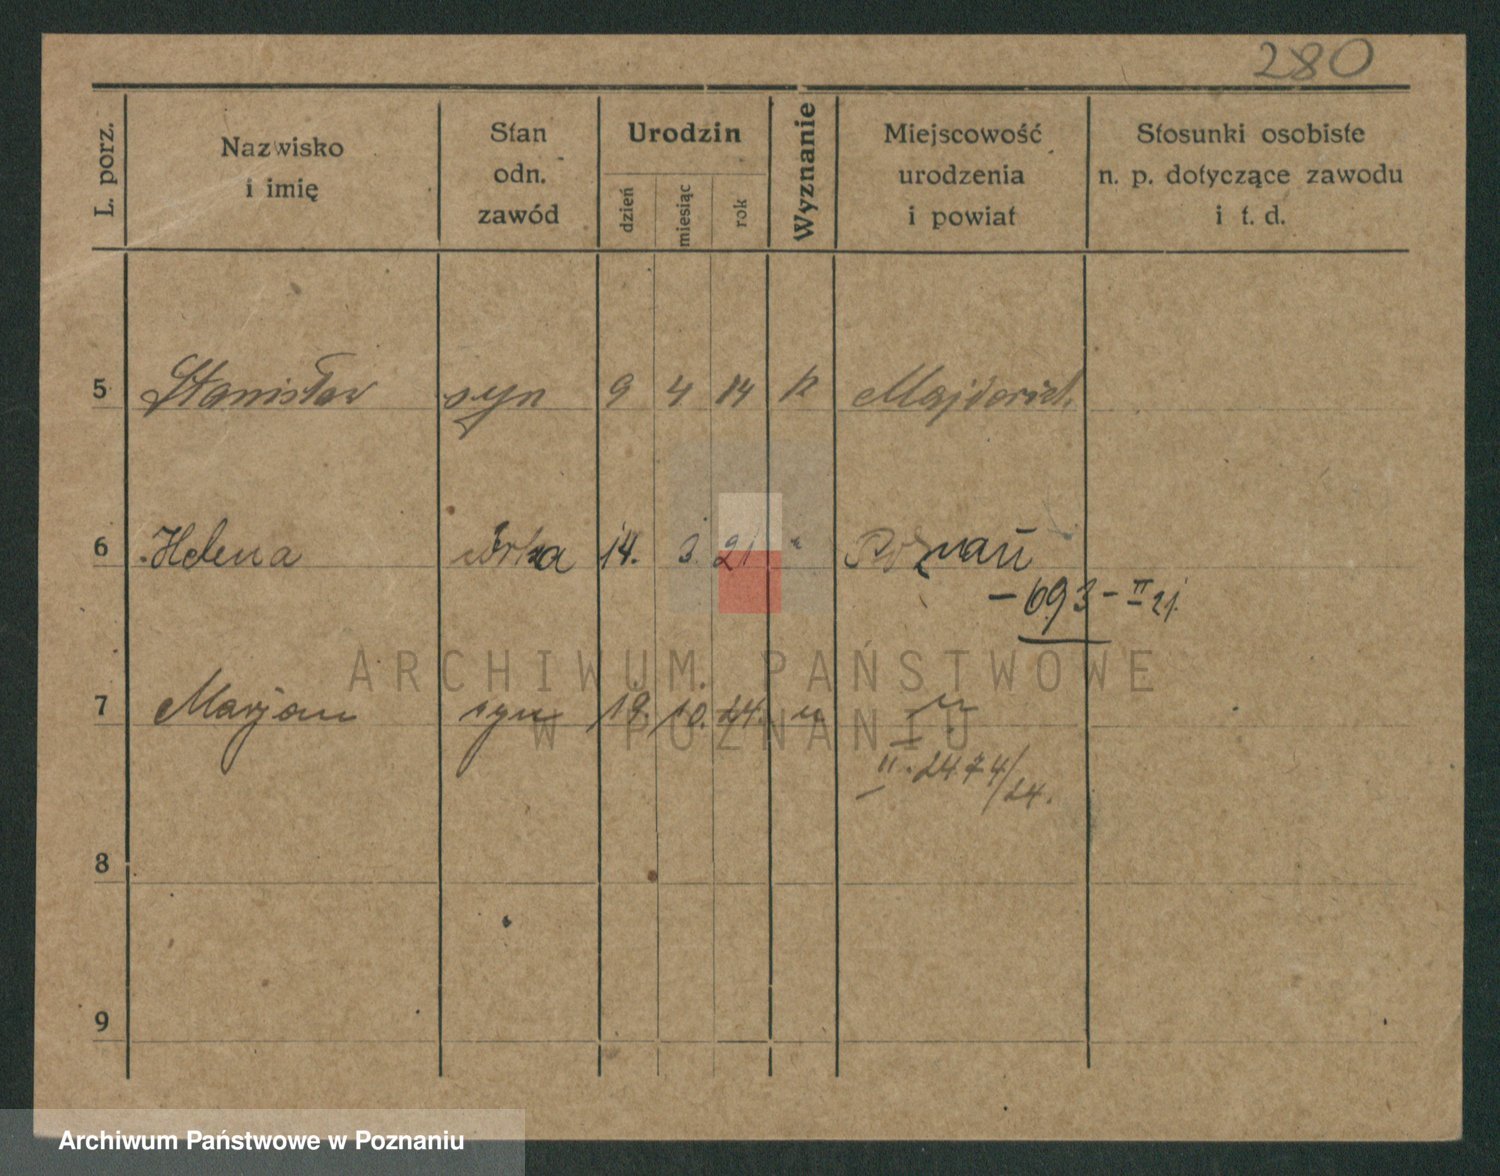 280
L. porz.
Nazwisko i imię
Stan odn. zawód
Urodzin
dzień
miesiąc
rok
Wyznanie
Miejscowość urodzenia i powiat
Stosunki osobiste n. p. dotyczące zawodu i t. d.
5 Stanisław syn 9 4 14 k
6 Helena córka 14. 3. 21 " Poznań
– 693 – II 21.
7 Marjan syn 19. 10. 24. " "
II. 2474/24.
8
9
ARCHIWUM PAŃSTWOWE
W POZNANIU
Archiwum Państwowe w Poznaniu